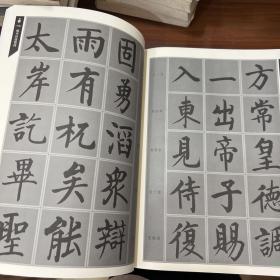 方常皇德調
一出帝子賜
入東見侍復
固勇滔衆辯
雨有杌矣能
太岸訖畢聖